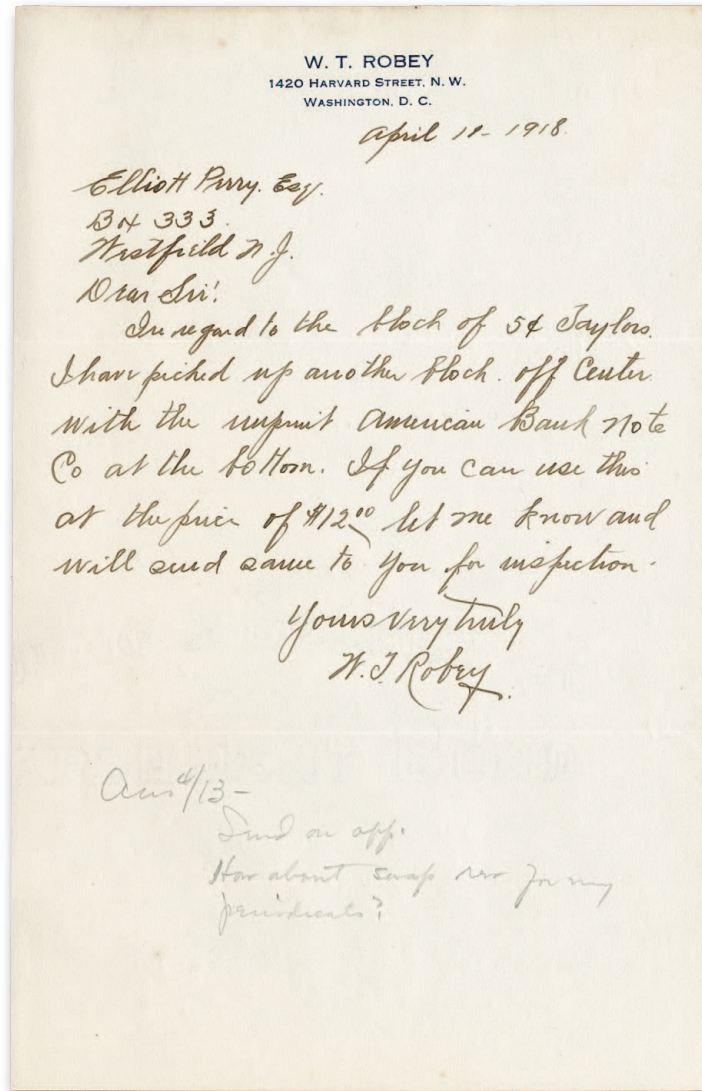 W. T. ROBEY
1420 HARVARD STREET, N. W.
WASHINGTON, D. C.
April 1918.
Elliott Perry. Esq.
Box 333.
Westfield N. J.
Dear Sir!
In regard to the block of 5¢ Taylors.
I have picked up another block. off Center
with the imprint American Bank Note
Co at the bottom. If you can use this
at the price of $12.00 let me know and
will send same to you for inspection.
Yours very truly
W. T. Robey.
Ans 4/13 -
Send on app.
How about swap for my
periodicals?